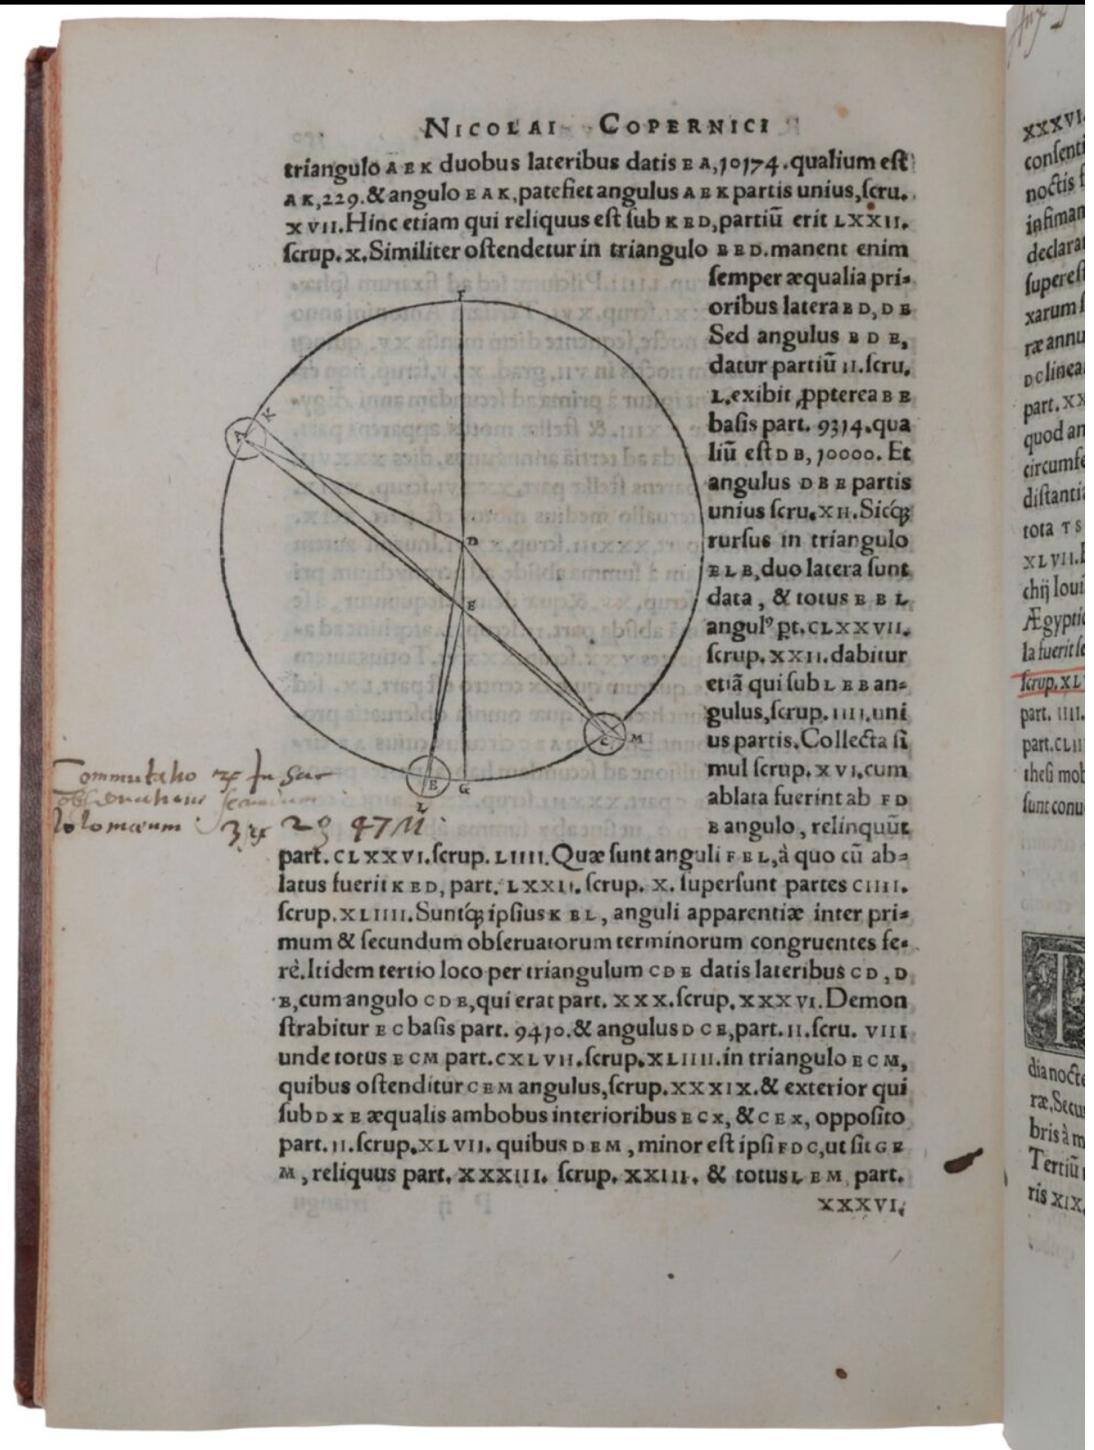 NICOLAI COPERNICI
triangulo A E K duobus lateribus datis E A, 10174. qualium eſt
A K, 229. & angulo E A K, patefiet angulus A E K partis unius, ſcru.
XVII. Hinc etiam qui reliquus eſt ſub K E D, partiũ erit LXXII.
ſcrup. X. Similiter oſtendetur in triangulo B E D. manent enim
ſemper æqualia pri=
oribus latera B D, D E
Sed angulus B D E,
datur partiũ II. ſcru.
L. exibit ꝓpterea B E
baſis part. 9314. qua
liũ eſt D B, 10000. Et
angulus D B E partis
unius ſcru. XII. Sicꝙ
rurſus in triangulo
E L B, duo latera ſunt
data, & totus E B L
angulꝰ pt. CLXXVII.
ſcrup. XXII. dabitur
etiã qui ſub L E B an=
gulus, ſcrup. IIII. uni
us partis. Collecta ſi
mul ſcrup. XVI. cum
ablata fuerint ab F D
B angulo, relinquũt
part. CLXXVI. ſcrup. LIIII. Quæ ſunt anguli F E L, à quo cũ ab=
latus fuerit K E D, part. LXXII. ſcrup. X. ſuperſunt partes CIIII.
ſcrup. XLIIII. Suntꝙ ipſius K E L, anguli apparentiæ inter pri=
mum & ſecundum obſeruatorum terminorum congruentes fe=
rè. Itidem tertio loco per triangulum C D E datis lateribus C D, D
E, cum angulo C D E, qui erat part. XXX. ſcrup. XXXVI. Demon
ſtrabitur E C baſis part. 9410. & angulus D C E, part. II. ſcru. VIII
unde totus E C M part. CXLVII. ſcrup. XLIIII. in triangulo E C M,
quibus oſtenditur C E M angulus, ſcrup. XXXIX. & exterior qui
ſub D X E æqualis ambobus interioribus E C X, & C E X, oppoſito
part. II. ſcrup. XLVII. quibus D E M, minor eſt ipſi F D C, ut ſit G E
M, reliquus part. XXXIII. ſcrup. XXIII. & totus L E M part.
XXXVI.
F
K
A
D
E
C M
B G
L
Commutatio
47
XXXVI.
conſenti
noctis
infimam
declarat
ſupereſt
xarum
ræ annu
D C linea
part. XX
quod an
circumfe
diſtanti
tota T S
XLVII.
chij Ioui
Ægyptio
la fuerit
ſcrup. XL
part. IIII.
part. CLII
theſi mob
ſunt conu
T
dia nocte
ræ. Secu
bris à m
Tertiũ
ris XIX.